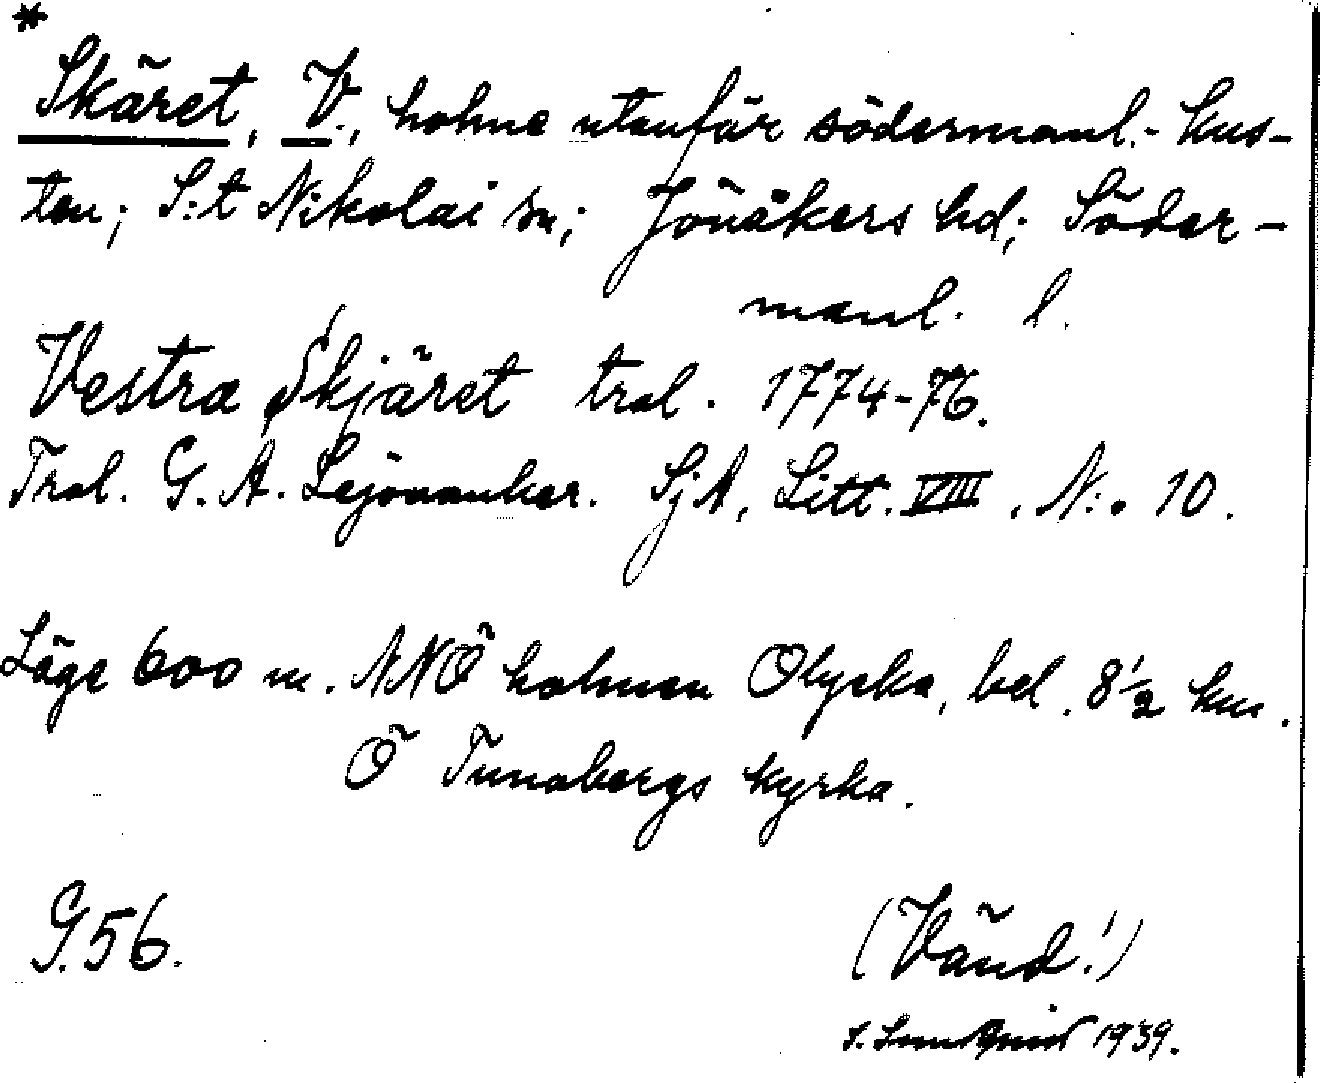 *
Skäret, V., holme utanför södermanl.- kus-
ten; S:t Nikolai sn; Jönåkers hd; Söder-
manl. l.
Vestra Skjäret trol. 1774-76.
Trol. G. A. Lejonanker. SjA, Litt. VIII, N:o 10.
Läge 600 m. NNÖ holmen Olycka, bel. 8½ km.
Ö Tunabergs kyrka.
G. 56.
(Vänd!)
S. Lundqvist 1939.